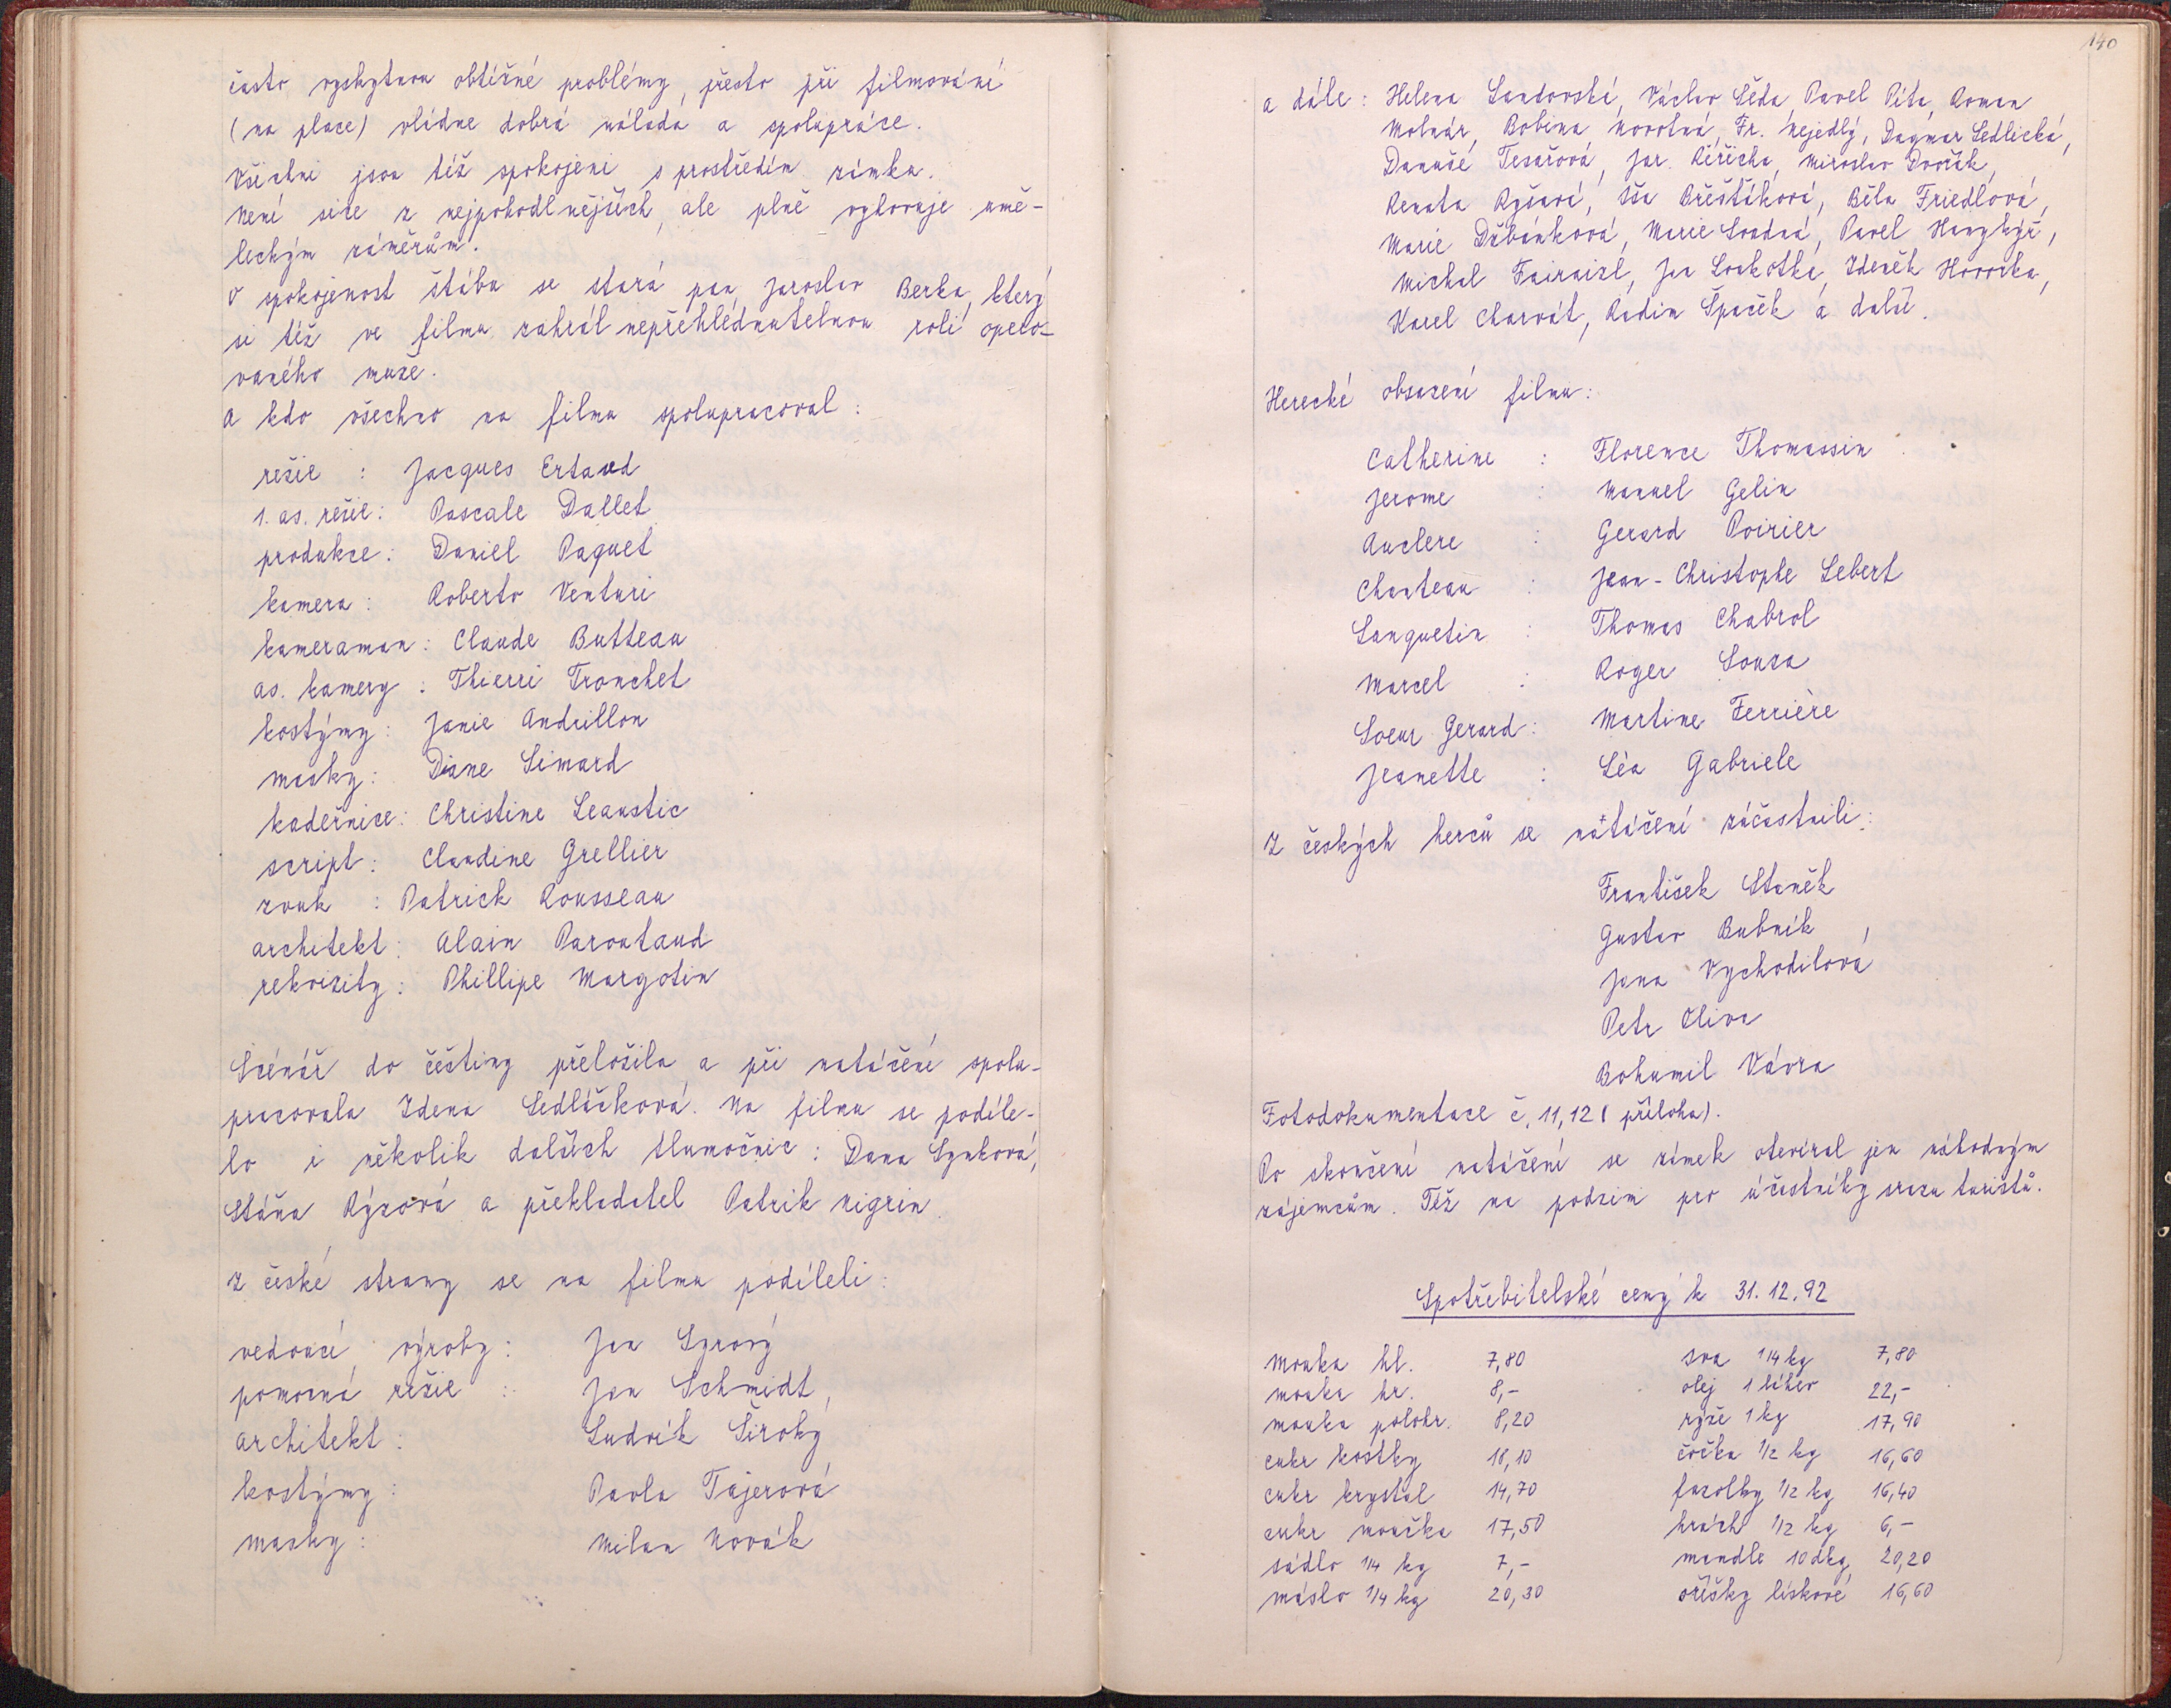 často vyskytnou obtížné problémy, přesto při filmování
(na place) vládne dobrá nálada a spolupráce.
Všichni jsou též spokojeni s prostředím zámku.
Není sice z nejpohodlnějších, ale plně vyhovuje umě-
leckým záměrům.
O spokojenost štábu se stará pan Jaroslav Berka, který
si též ve filmu zahrál nepřehlédnutelnou roli opero-
vaného muže.
A kdo všechno na filmu spolupracoval:
režie : Jacques Ertaud
1. as. režie: Pascale Dallet
produkce: Daniel Paquet
kamera: Roberto Venturi
kameraman: Claude Butteau
as. kamery: Thierri Tronchet
kostýmy: Janie Andrillon
masky: Diane Simard
kadeřnice: Christine Leaustic
script: Claudine Grellier
zvuk : Patrick Rousseau
architekt: Alain Paroutaud
rekvizity: Phillipe Margotin
Scénář do češtiny přeložila a při natáčení spolu-
pracovala Zdena Sedláčková. Na filmu se podíle-
lo i několik dalších tlumočnic: Dana Synková,
Stáňa Rýzová a překladatel Patrik Nigrin.
Z české strany se na filmu podíleli:
vedoucí výroby: Jan Syrový
pomocná režie : Jan Schmidt,
architekt: Ludvík Široký
kostýmy: Pavla Tajerová
masky: Milan Novák
140
a dále: Helena Sandovská, Václav Šeda, Pavel Pita, Roman
Molnár, Bobina Novotná, Fr. Nejedlý, Dagmar Sedlická,
Danuše Tesařová, Jar. Řeřicha, Miroslav Dvořák,
Renata Ryšavá, Iša Břešťáková, Běla Friedlová,
Marie Džbánková, Marie Svadná, Pavel Hanykýř,
Michal Fairaizl, Jan Lockotka, Zdeněk Hovorka,
Karel Charvát, Radim Špaček a další.
Herecké obsazení filmu:
Catherine : Florence Thomassin
Jerome : Manuel Gelin
Auclere : Gerard Poirier
Chanteau : Jean-Christophe Lebert
Languetin : Thomas Chabrol
Marcel : Roger Souza
Soeur Gerard: Martine Ferrière
Jeanette : Léa Gabriele
Z českých herců se natáčení zúčastnili:
František Staněk
Gustav Bubník
Jana Vychodilová
Petr Oliva
Bohumil Vávra
Fotodokumentace č. 11, 12 (příloha).
Po skončení natáčení se zámek otevíral jen náhodným
zájemcům. Též na podzim pro účastníky srazu turistů.
Spotřebitelské ceny k 31.12.92
mouka hl. 7,80 soa 1/4 kg 7,80
mouka hr. 8,- olej 1 láhev 22,-
mouka polohr. 8,20 rýže 1 kg 17,90
cukr kostky 18,10 čočka 1/2 kg 16,60
cukr krystal 14,70 fazolky 1/2 kg 16,40
cukr moučka 17,50 hrách 1/2 kg 6,-
sádlo 1/4 kg 7,- mandle 10 dkg 20,20
máslo 1/4 kg 20,30 oříšky lískové 16,60